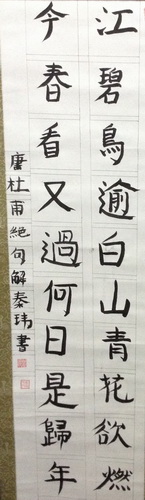 江碧鳥逾白山青花欲燃
今春看又過何日是歸年
唐杜甫絕句解秦玮書